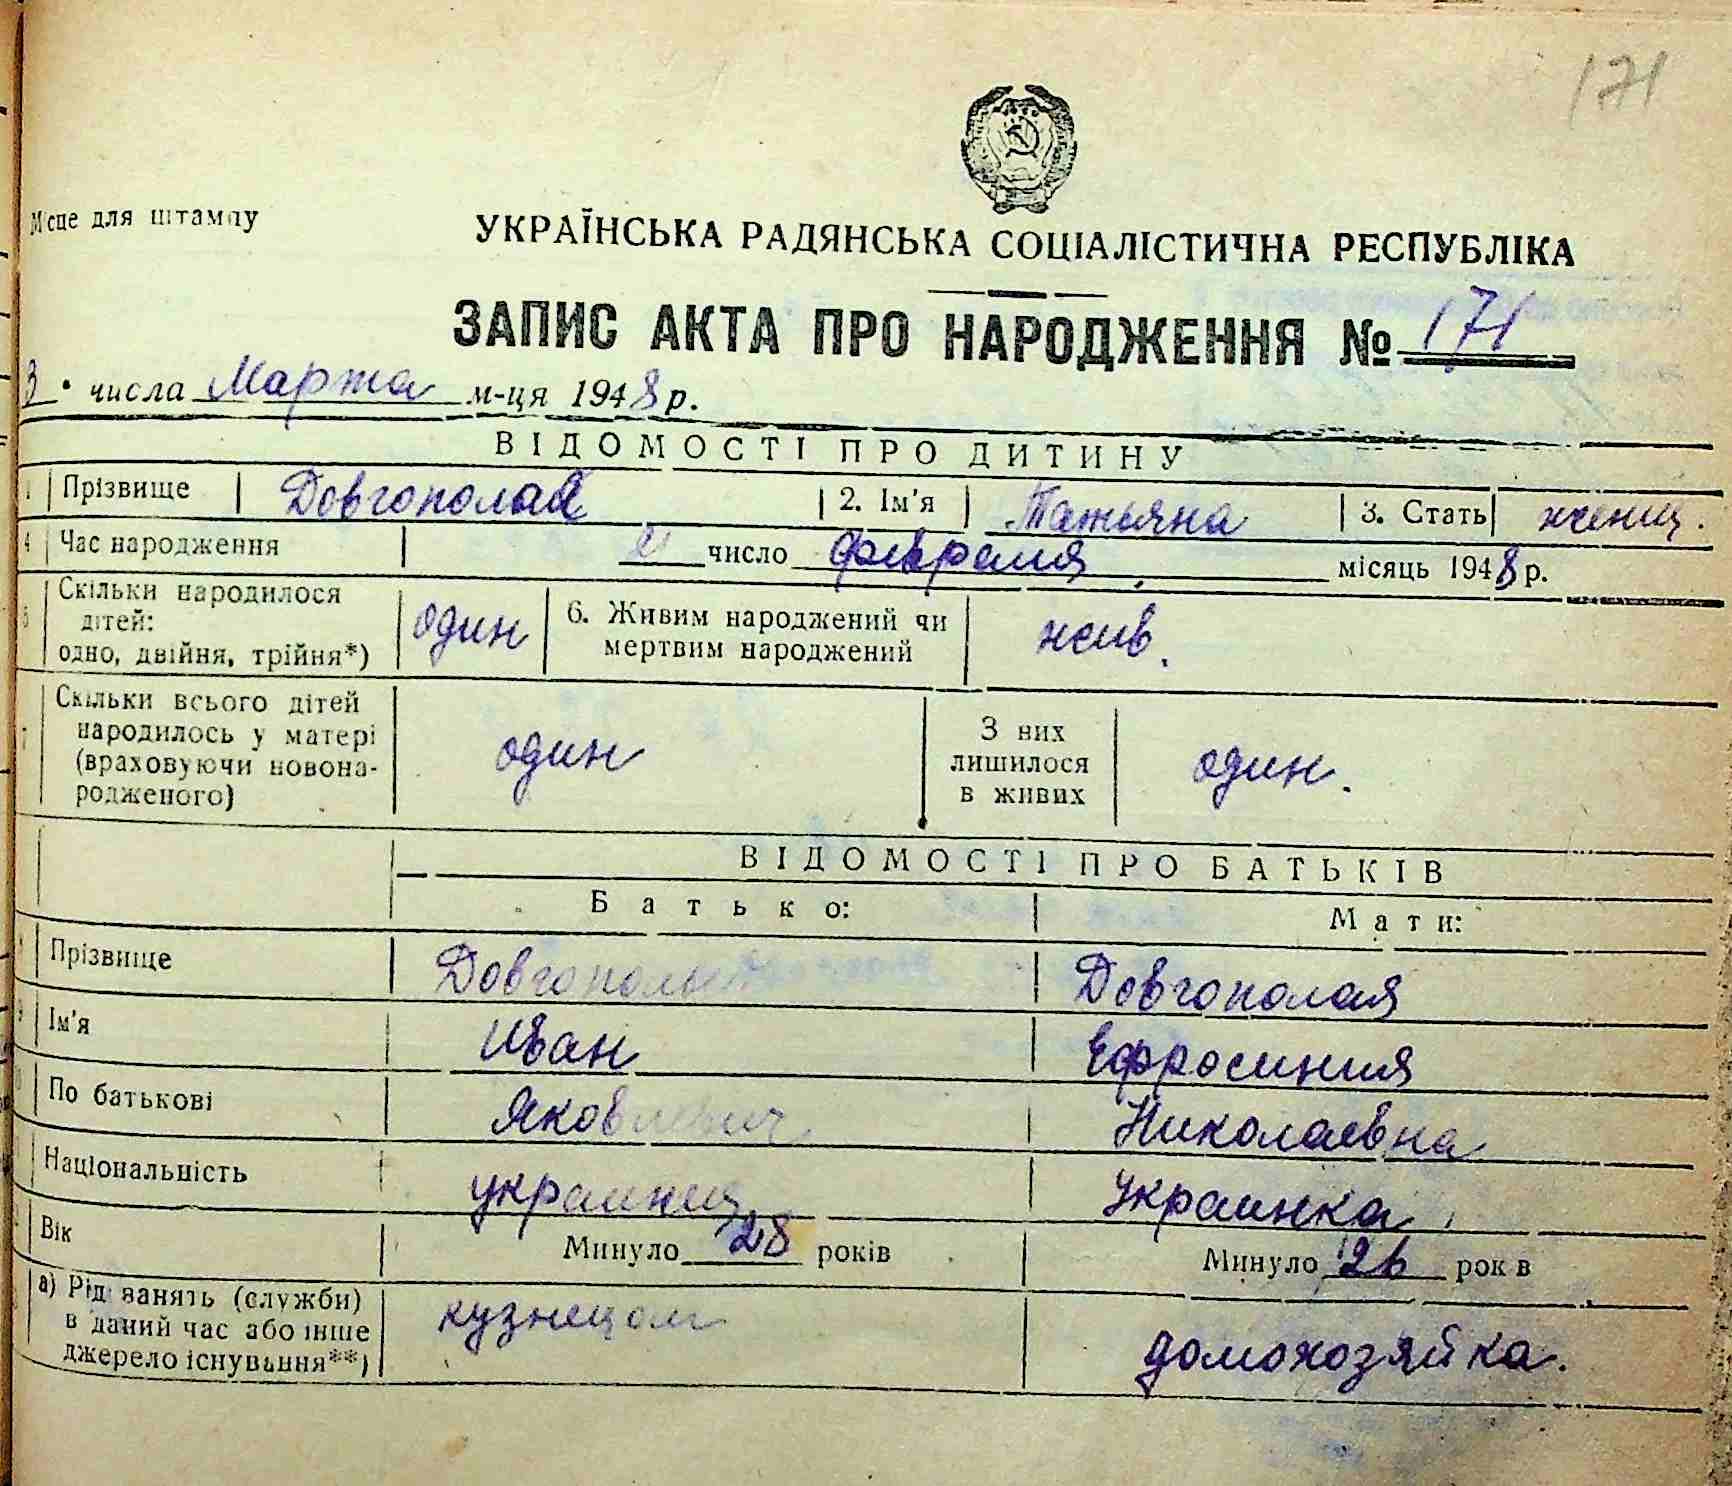 171
Місце для штампу
УКРАЇНСЬКА РАДЯНСЬКА СОЦІАЛІСТИЧНА РЕСПУБЛІКА
ЗАПИС АКТА ПРО НАРОДЖЕННЯ № 171
3 числа Марта м-ця 1948 р.
ВІДОМОСТІ ПРО ДИТИНУ
1 Прізвище Довгополая 2. Ім'я Татьяна 3. Стать женщ.
4 Час народження число февраля місяць 1948 р.
5 Скільки народилося
дітей:
одно, двійня, трійня*) один 6. Живим народжений чи
мертвим народжений жив.
7 Скільки всього дітей
народилось у матері
(враховуючи новона-
родженого) один З них
лишилося
в живих один.
ВІДОМОСТІ ПРО БАТЬКІВ
Батько: Мати:
Прізвище Довгополый Довгополая
9 Ім'я Иван Ефросиния
10 По батькові Яковлевич Николаевна
Національність украинец украинка
Вік Минуло 28 років Минуло 26 рок в
а) Рід занять (служби)
в даний час або інше
джерело існування**) кузнецом домохозяйка.